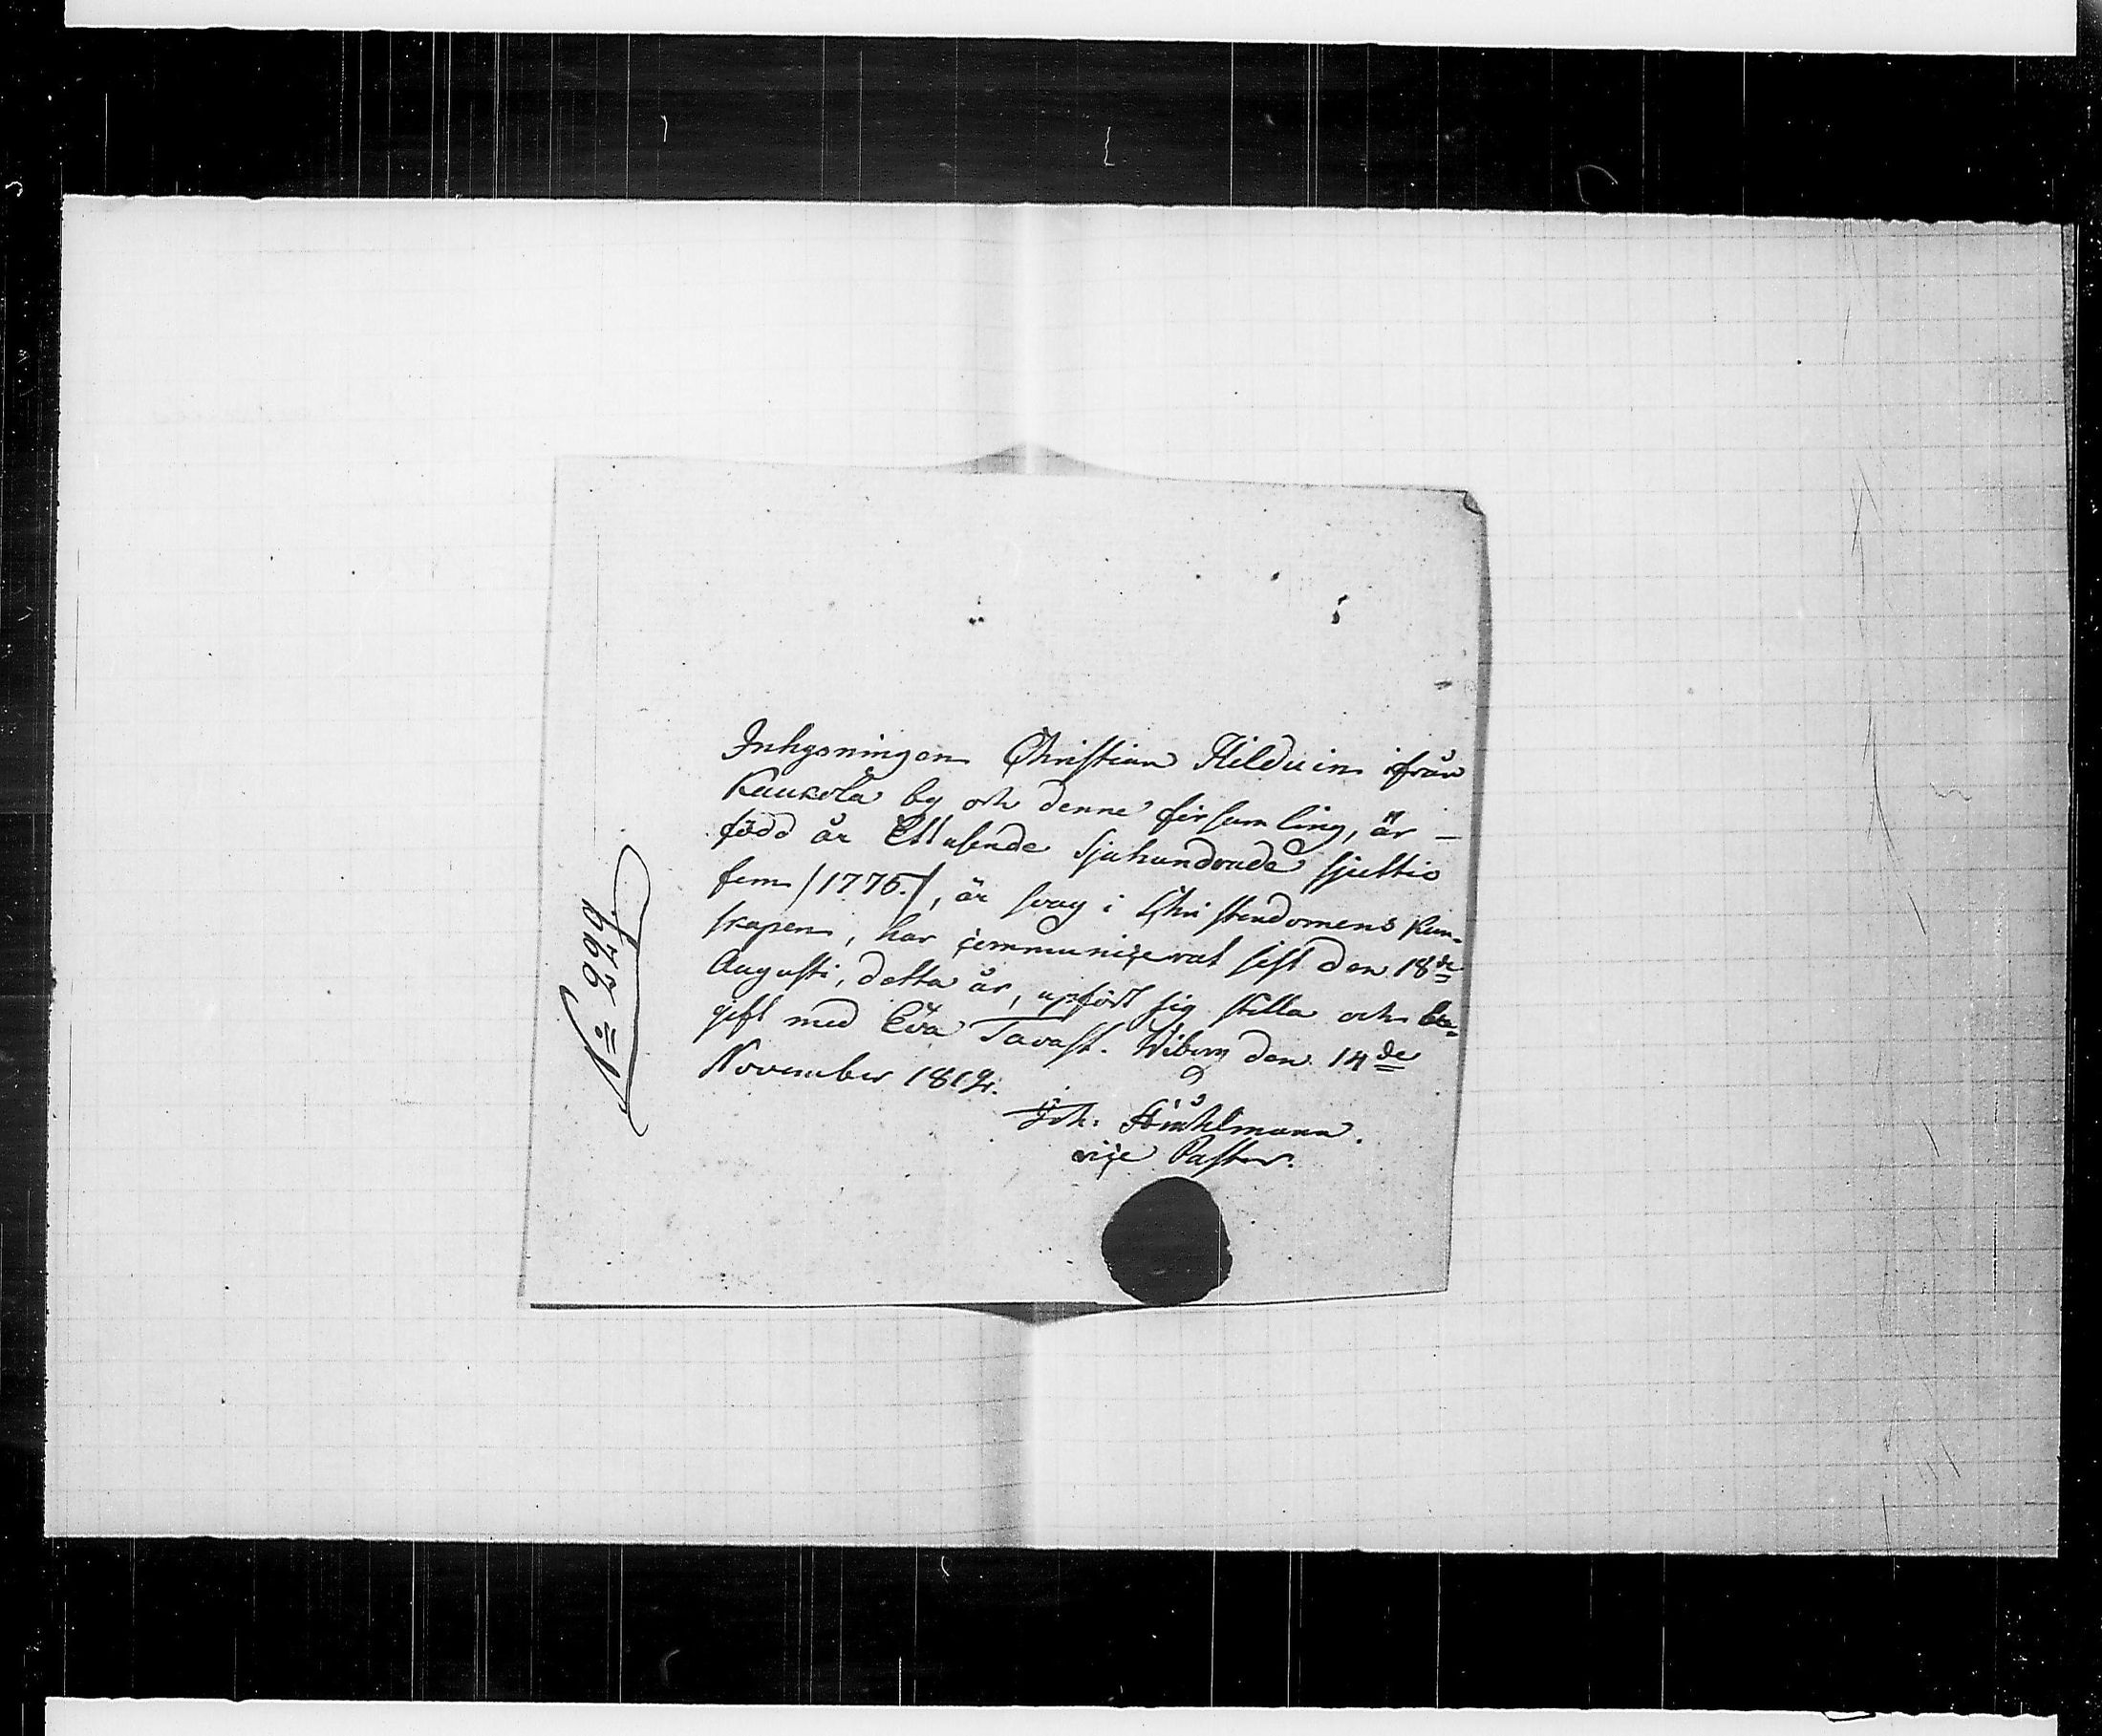 Inhysningen Christian Hilduin ifrån
Kaukola by och denne församling, är -
född år Ettusende sjuhundrade sjuttio
fem /1775./, är svag i Christendomens kun-
skapen, har communicerat sist den 18de
Augusti, detta år, upfört sig stilla och be-
gift med Eva Tavast. Wiborg den 14de
November 1812.
Joh. Stråhlmann.
vice Pastor.
No 229